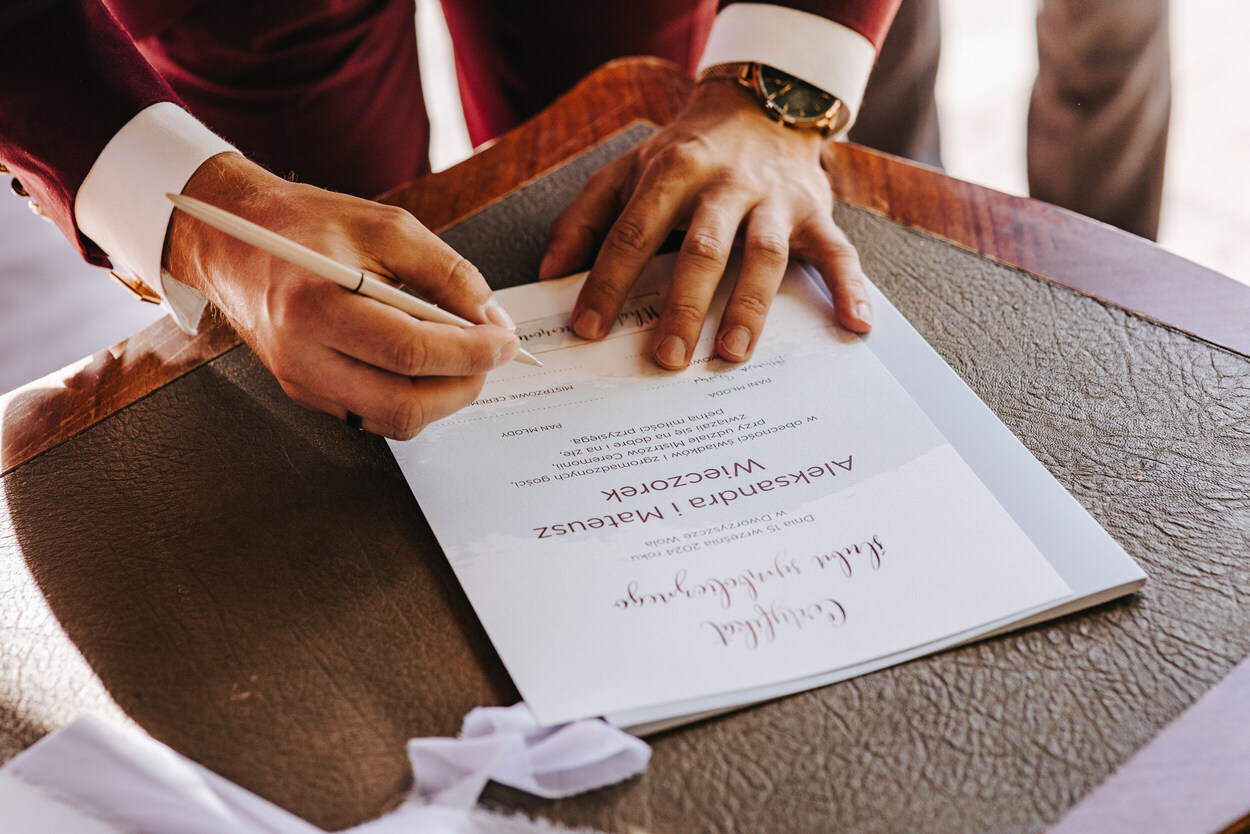 Certyfikat
ślubu symbolicznego
Dnia 15 września 2024 roku
w Dworzyszcze Wola
Aleksandra i Mateusz
Wieczorek
w obecności świadków i zgromadzonych gości,
przy udziale Mistrzów Ceremonii,
związali się na dobre i na złe,
pełną miłości przysięgą.
PANI MŁODA
PAN MŁODY
MISTRZOWIE CEREM